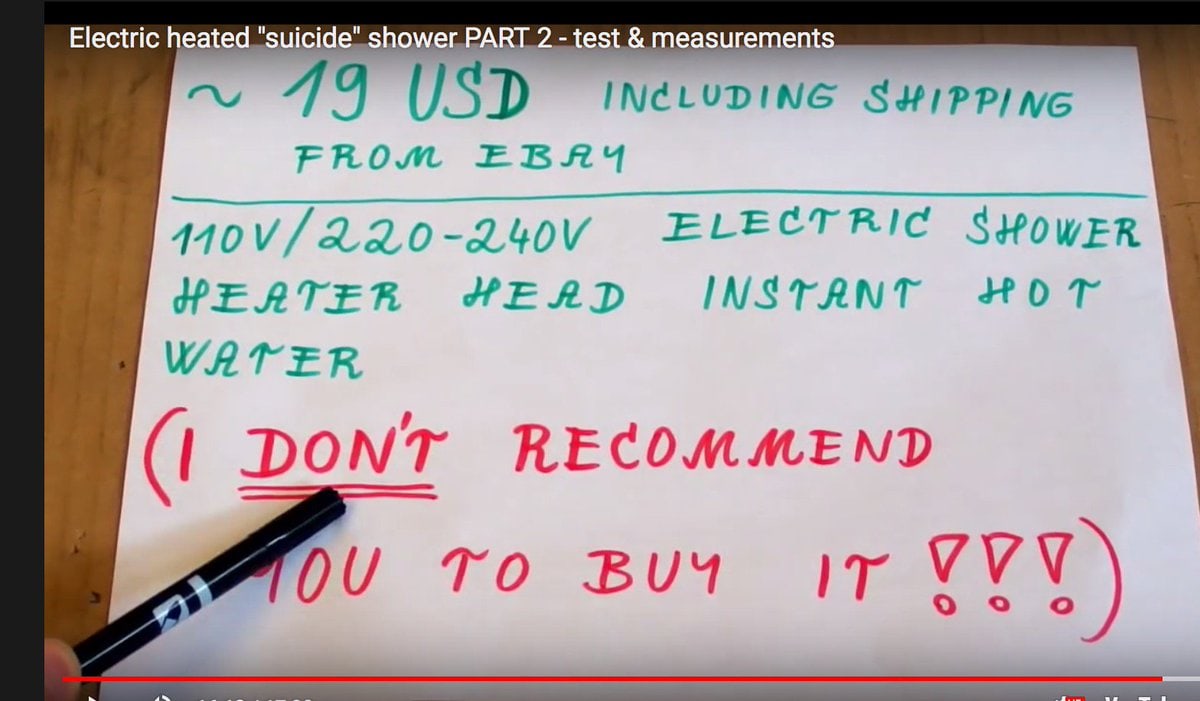 Electric heated "suicide" shower PART 2 - test & measurements
~ 19 USD INCLUDING SHIPPING
FROM EBAY
110V/220-240V ELECTRIC SHOWER
HEATER HEAD INSTANT HOT
WATER
(I DON'T RECOMMEND
YOU TO BUY IT !!!)